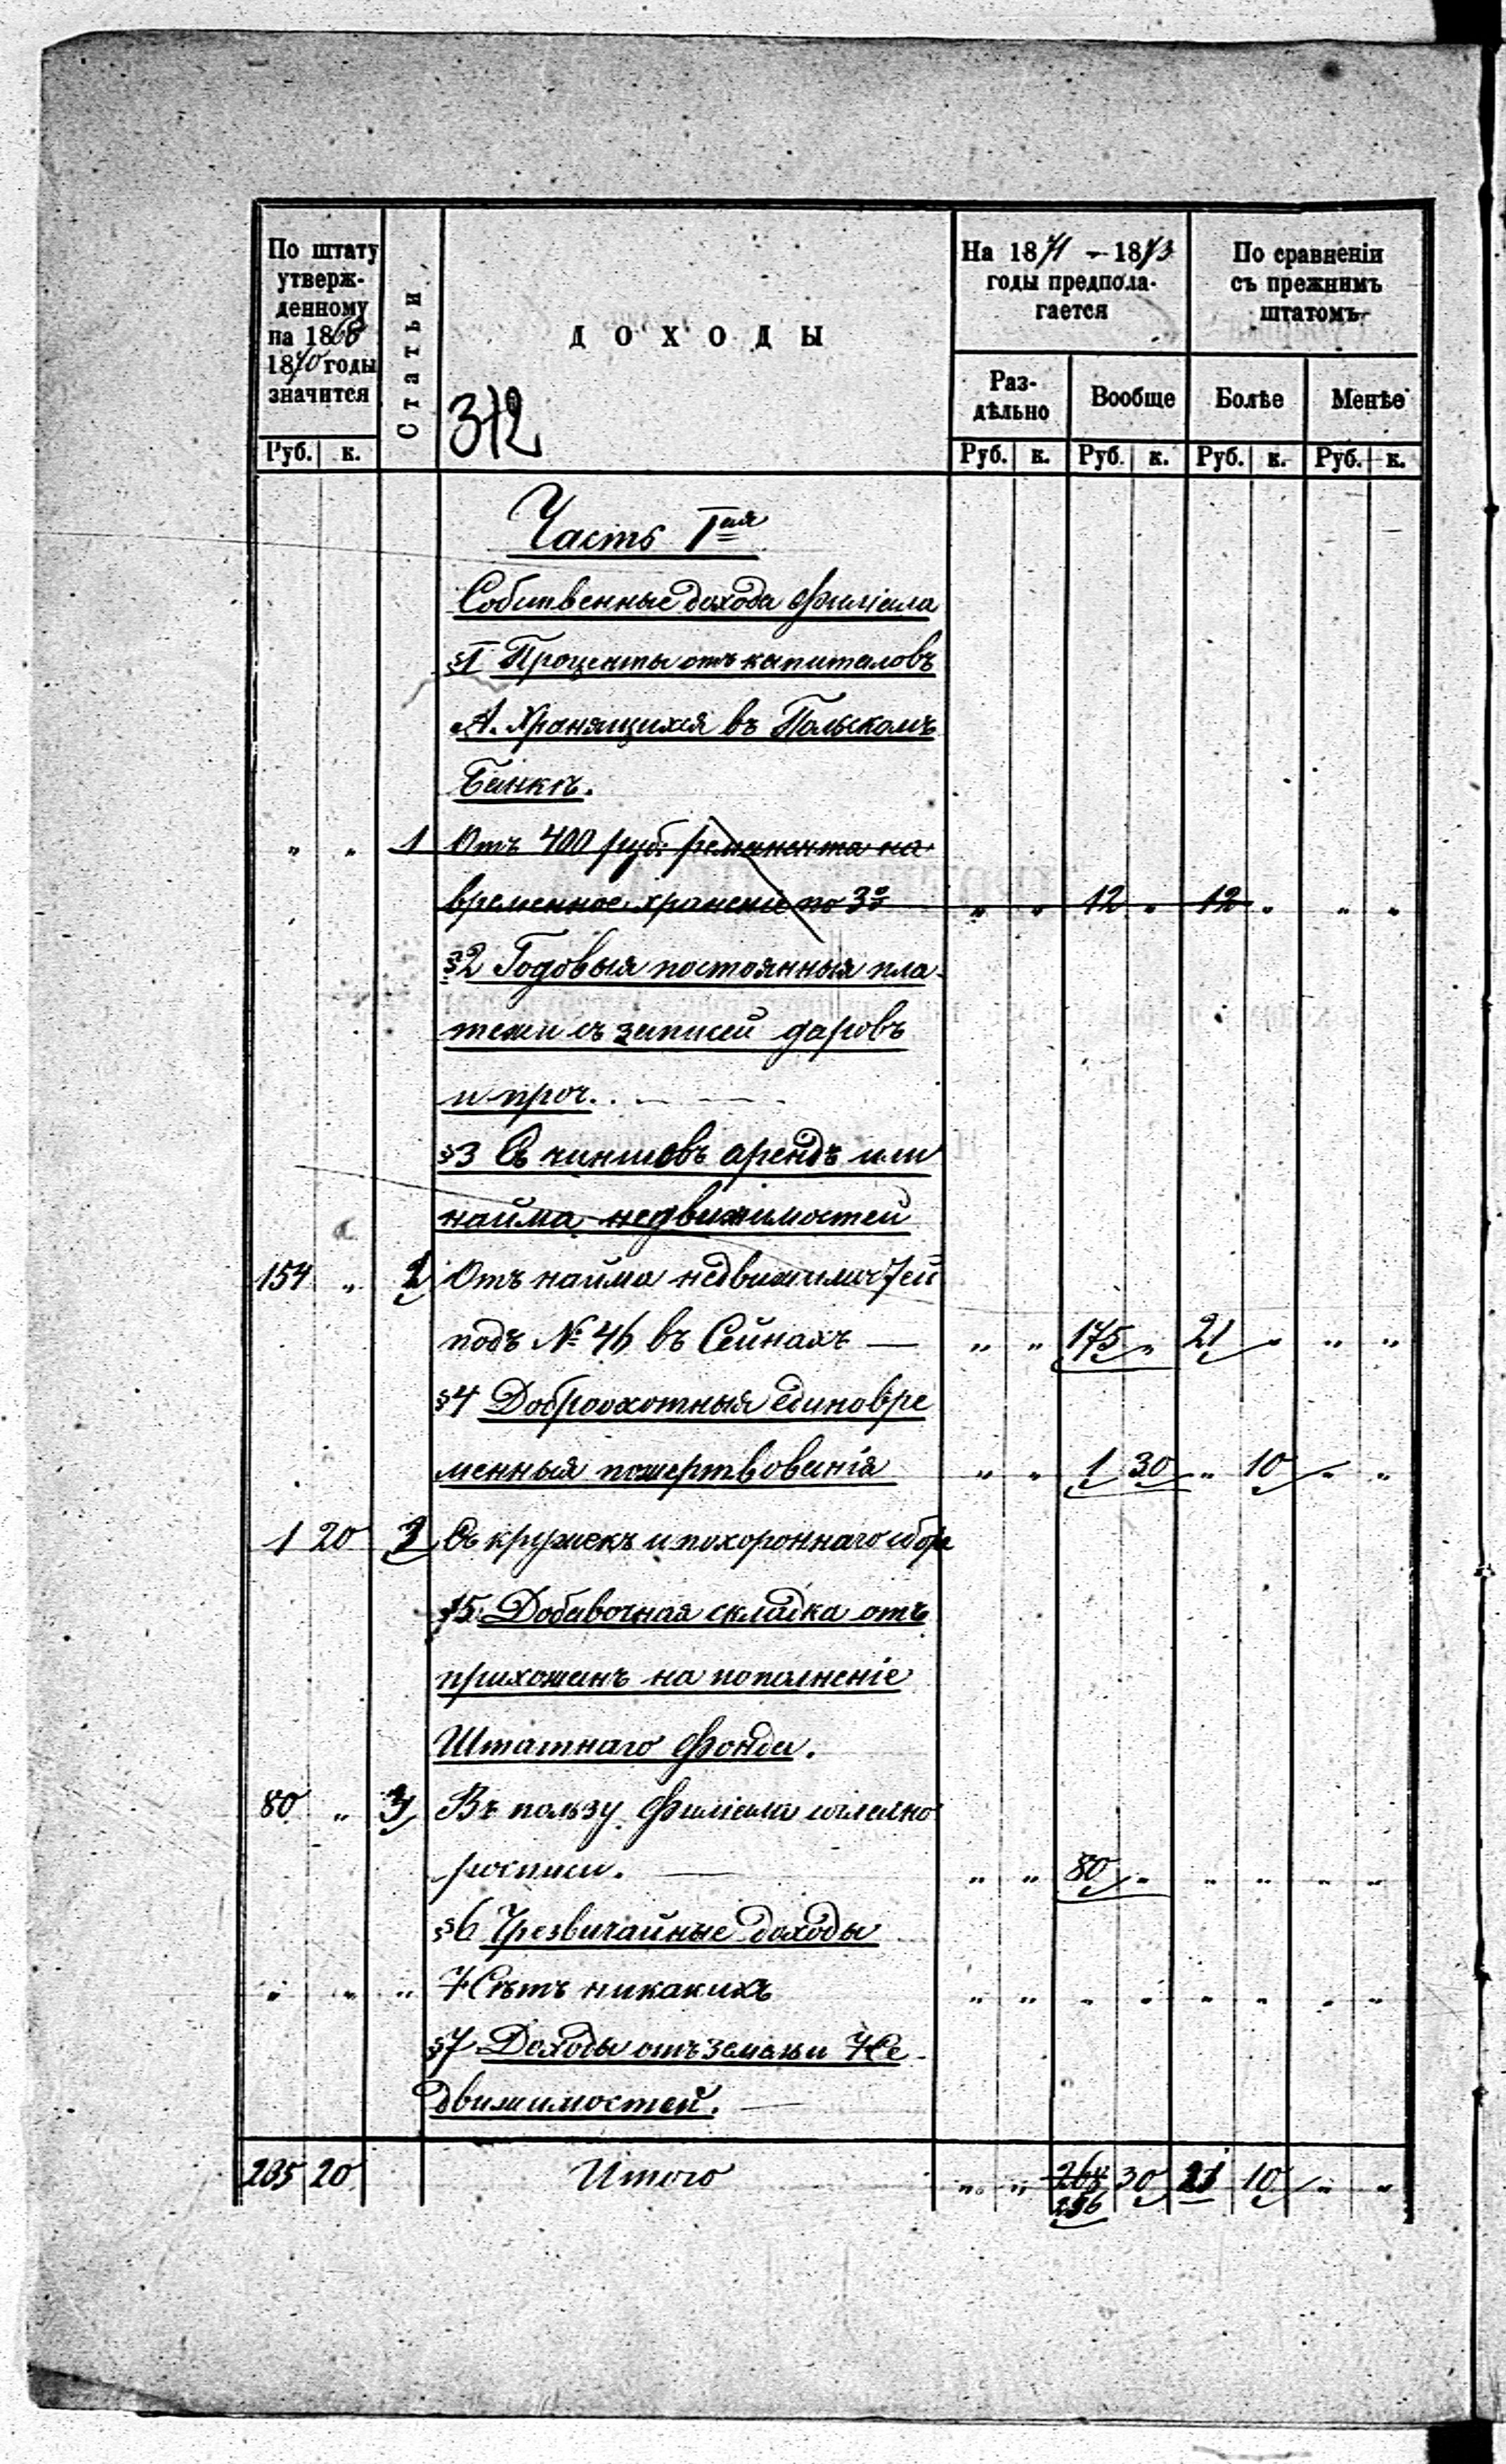 По штату утверж-денному на 1868 1870 годы значится
Статьи
ДОХОДЫ
На 1871 - 1873 годы предпола-гается
По сравненіи съ прежнимъ штатомъ
Раз-дѣльно
Вообще
Болѣе
Менѣе
312
Руб. к. Руб. к. Руб. к. Руб. к. Руб. к.
Часть I ая
Собственные дохода Филіала
§1 Проценты отъ капиталовъ
А. Хранящихся въ Польскомъ
Банкѣ.
„ „ 1 Отъ 400 руб. реманента на
временное храненіе по 3% „ „ 12 „ 12 „ „ „
§2 Годовыя постоянныя пла-
тежи съ записей даровъ
и проч.
§3 Съ чиншовъ арендъ или
найма недвижимостей
154 „ 2 Отъ найма недвижимостей
подъ № 46 въ Сейнахъ — „ „ 175 „ 21 „ „ „
§4 Доброохотныя единовре
менныя пожертвованія „ „ 1 30 „ 10 „ „
1 20 Съ кружекъ и похороннаго сбора
§5 Добавочная складка отъ
прихожанъ на пополненіе
Штатнаго Фонда.
80 „ 3 Въ пользу Филіала
росписи. — „ „ 80 „ „ „ „ „
§6 Чрезвычайные доходы
„ „ „ Нѣтъ никакихъ „ „ „ „ „ „ „ „
§7 Доходы отъ земли и Не-
движимостей. —
235 20 Итого „ „ 268 30 21 10 „ „
256